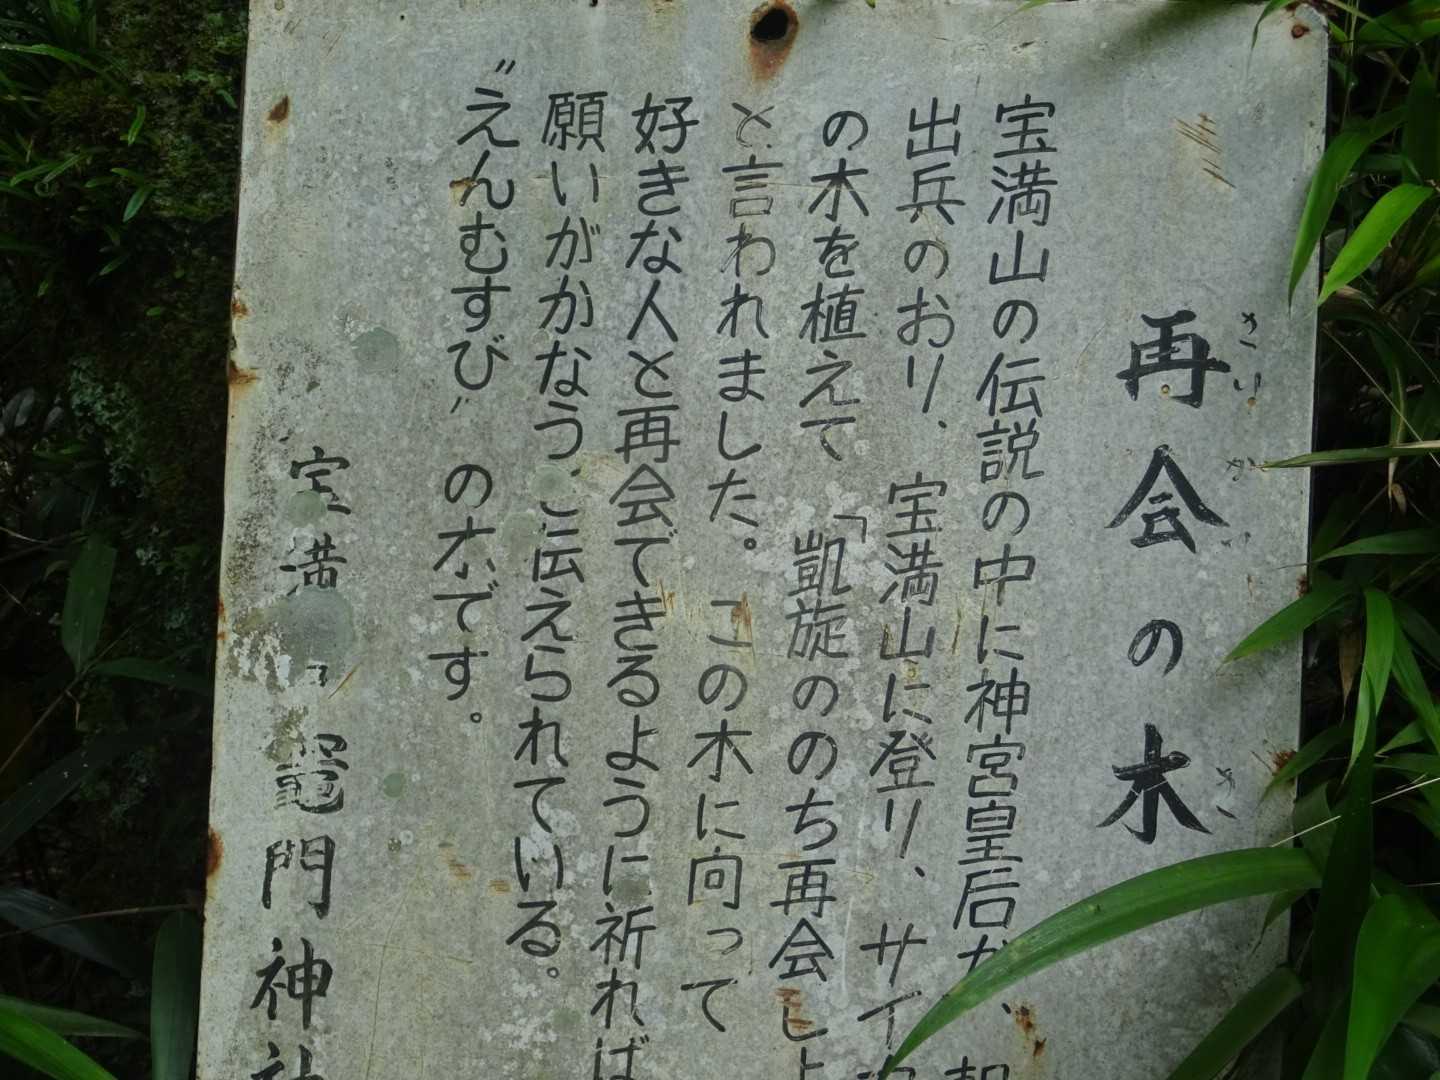 再会の木
さいかい き
宝満山の伝説の中に神宮皇后が、
出兵のおり、宝満山に登り、サイ
の木を植えて「凱旋ののち再会し
と言われました。この木に向って
好きな人と再会できるように祈れば
願いがかなうと伝えられている。
〝えんむすび〟の木です。
宝満 竈門神社